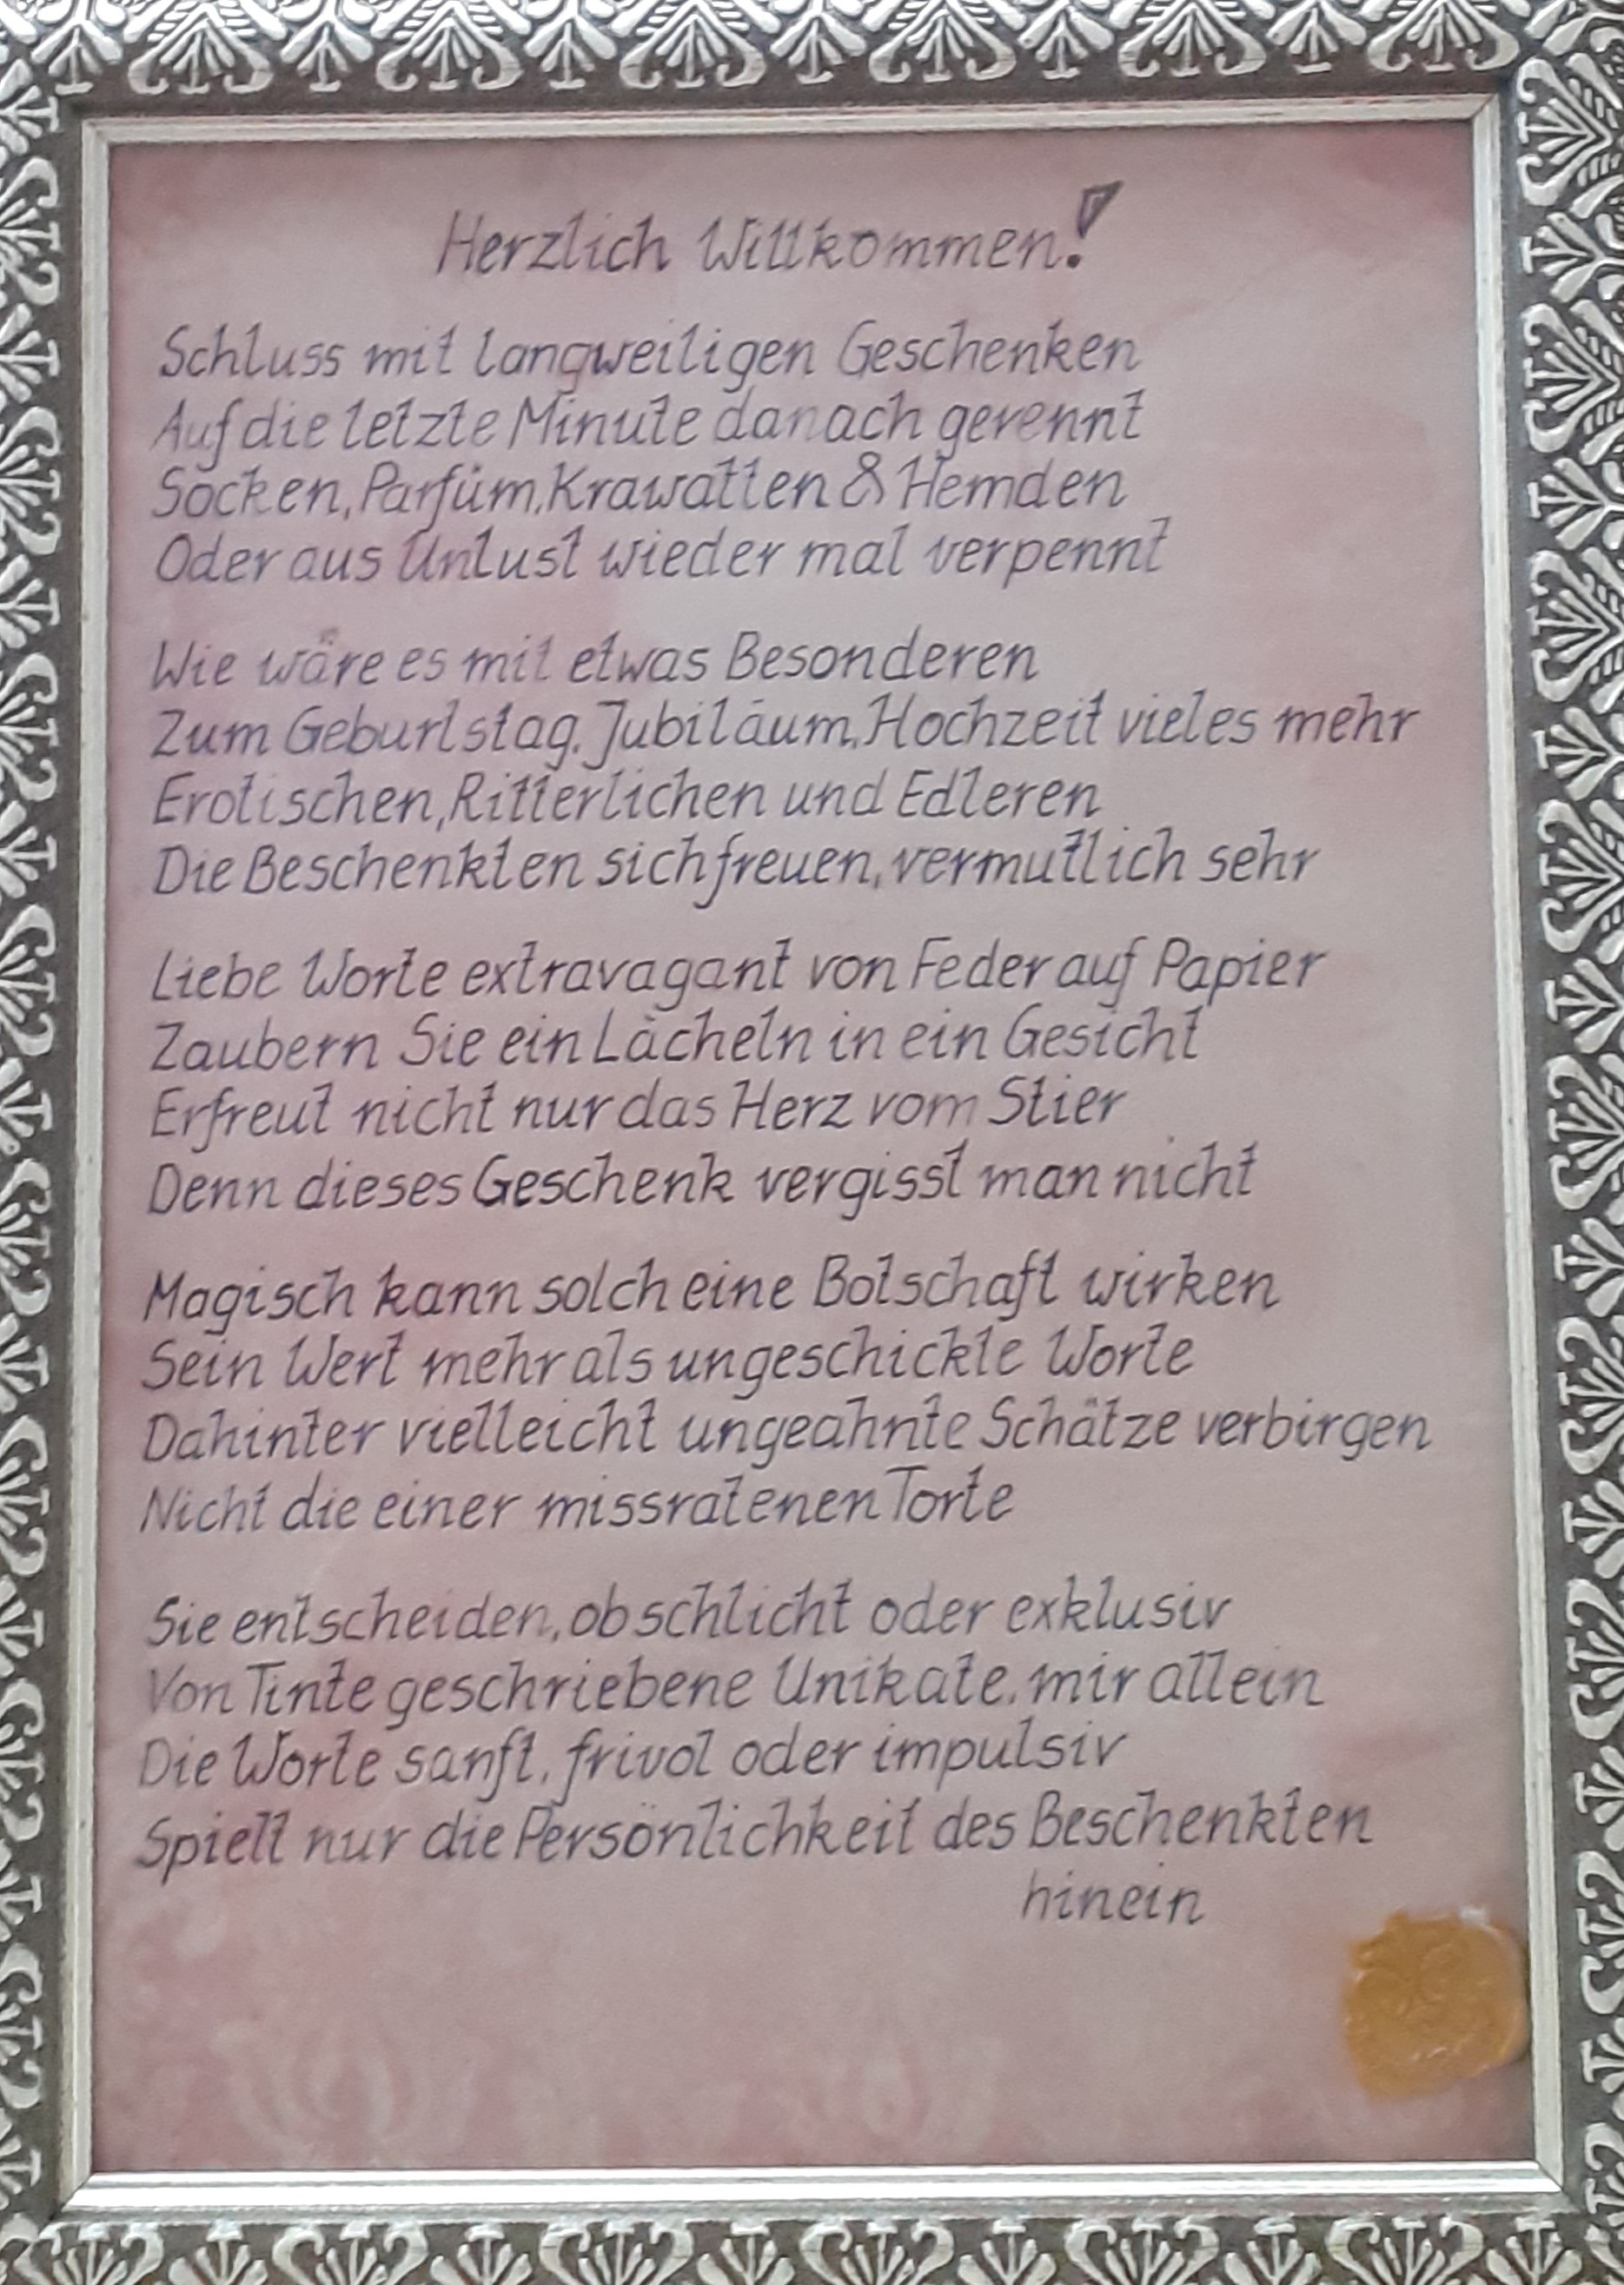 Herzlich Willkommen!
Schluss mit langweiligen Geschenken
Auf die letzte Minute danach gerennt
Socken, Parfüm, Krawatten & Hemden
Oder aus Unlust wieder mal verpennt
Wie wäre es mit etwas Besonderen
Zum Geburtstag, Jubiläum, Hochzeit vieles mehr
Erotischen, Ritterlichen und Edleren
Die Beschenkten sich freuen, vermutlich sehr
Liebe Worte extravagant von Feder auf Papier
Zaubern Sie ein Lächeln in ein Gesicht
Erfreut nicht nur das Herz vom Stier
Denn dieses Geschenk vergisst man nicht
Magisch kann solch eine Botschaft wirken
Sein Wert mehr als ungeschickte Worte
Dahinter vielleicht ungeahnte Schätze verbirgen
Nicht die einer missratenen Torte
Sie entscheiden, ob schlicht oder exklusiv
Von Tinte geschriebene Unikate, mir allein
Die Worte sanft, frivol oder impulsiv
Spielt nur die Persönlichkeit des Beschenkten
hinein